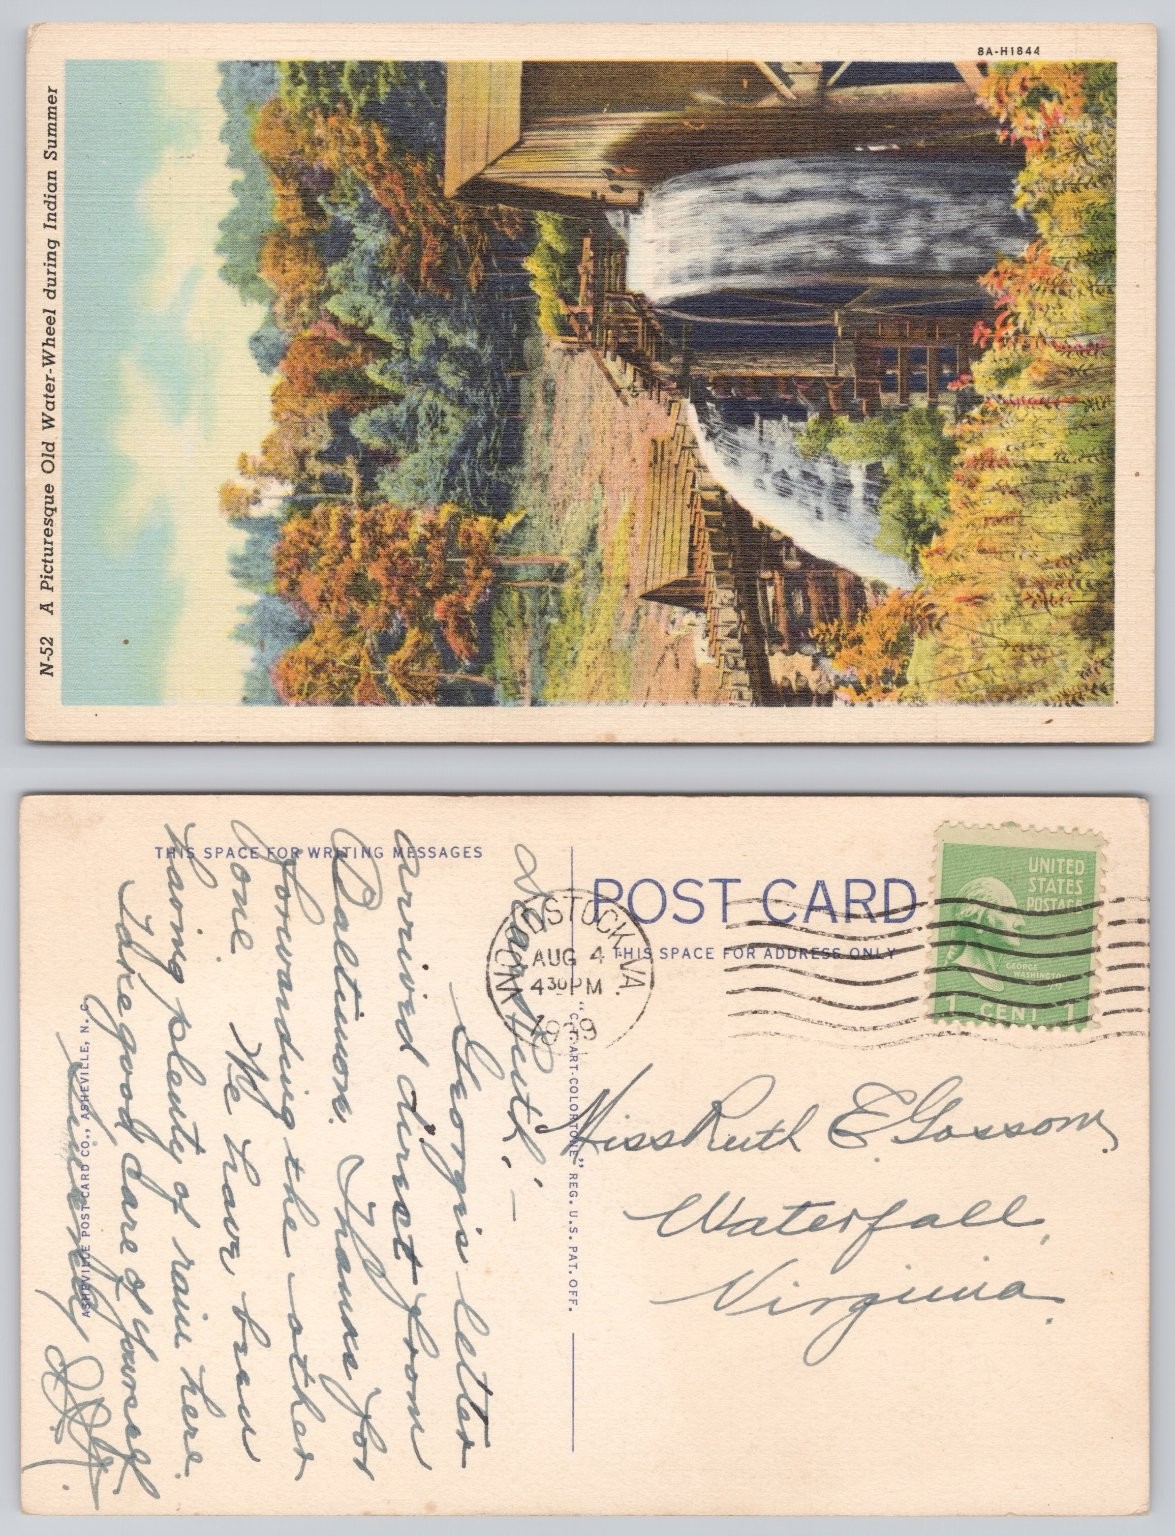 8A-H1844
N-52 A Picturesque Old Water-Wheel during Indian Summer
THIS SPACE FOR WRITING MESSAGES
POST CARD
THIS SPACE FOR ADDRESS ONLY
UNITED
STATES
POSTAGE
GEORGE
WASHINGTON
1 CENT 1
WOODSTOCK, VA.
AUG 4
430 PM
1939
"C.T. ART-COLORTONE" REG. U.S. PAT. OFF.
ASHEVILLE POST CARD CO., ASHEVILLE, N. C.
Miss Ruth E. Gossom,
Waterfall,
Virginia.
Dear Ruth: —
Georgie letter
arrived direct from
Baltimore. Thanks for
forwarding the other
one. We have been
having plenty of rain here.
Take good care of yourself
Sincerely